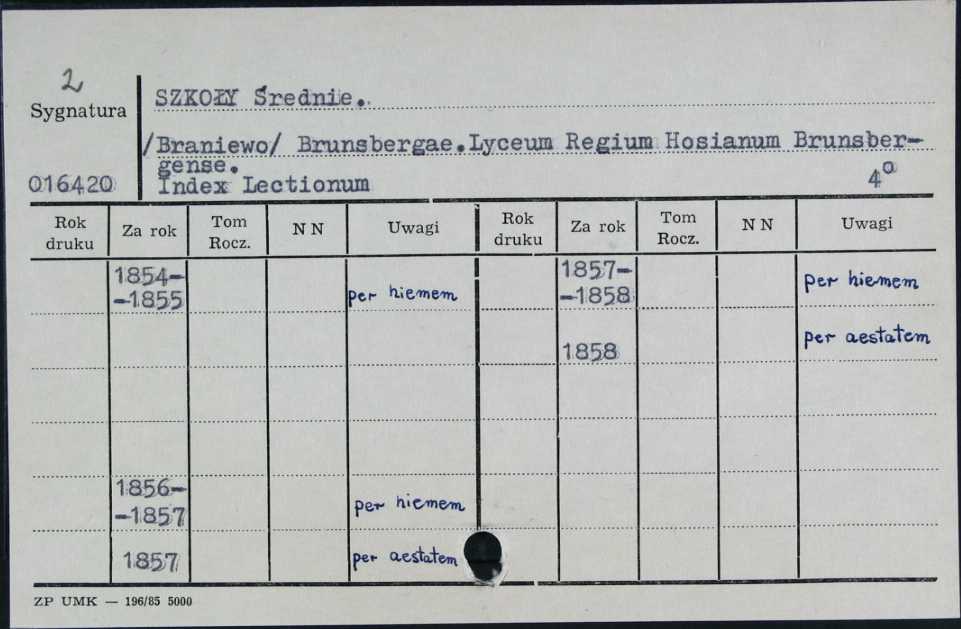 2
Sygnatura
SZKOŁY Średnie.
/Braniewo/ Brunsbergae.Lyceum Regium Hosianum Brunsber-
gense.
016420 Index Lectionum 4o
Rok druku Za rok Tom Rocz. N N Uwagi Rok druku Za rok Tom Rocz. N N Uwagi
1854- 1857-
-1855 per hiemem -1858 per hiemem
1858 per aestatem
1856-
-1857 per hiemem
1857 per aestatem
ZP UMK — 196/85 5000